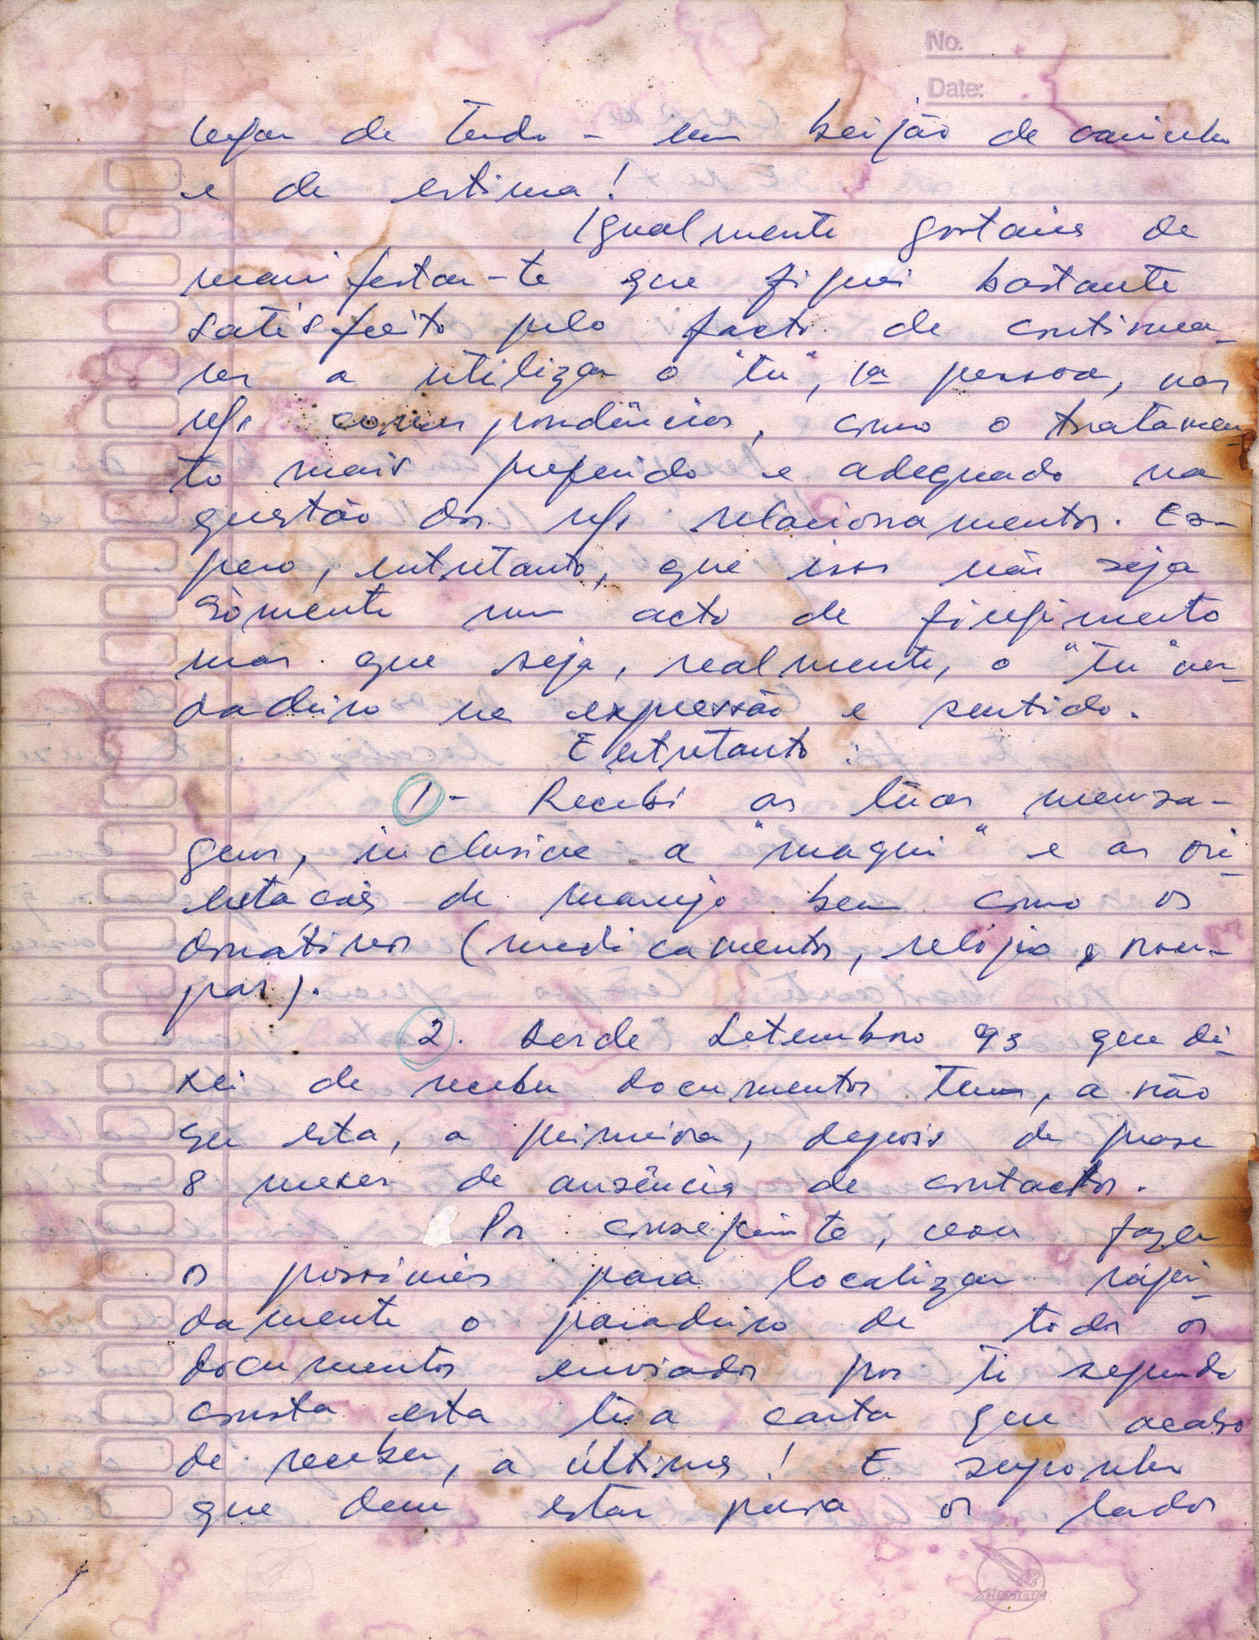 No.
Date:
lugar de Tudo - um beijão de carinho
e de estima!
Igualmente gostaria de
manifestar-te que fiquei bastante
satisfeito pelo facto de continua-
res a utilizar o "tu", 1a pessoa, nas
ns/ correspondências, como o tratamen-
to mais preferido e adequado na
questão dos ns/ relacionamentos. Es-
pero, entretanto, que isso não seja
sòmente um acto de fingimento
mas que seja, realmente, o "tu" ver-
dadeiro na expressão e sentido.
Entretanto:
1- Recebi as tuas mensa-
gens, inclusive a "maqui" e as ori-
entações de manejo bem como os
donativos (medicamentos, relógio e rou-
pas).
2. Desde Setembro 93 que dei-
xei de receber documentos teus, a não
ser esta, a primeira, depois de quase
8 meses de ausência de contactos.
Por conseguinte, vou fazer
os possíveis para localizar rápi-
damente o paradeiro de todos os
documentos enviados por ti segundo
consta esta tua carta que acabo
de receber, a última! E suponho
que devem estar para os lados